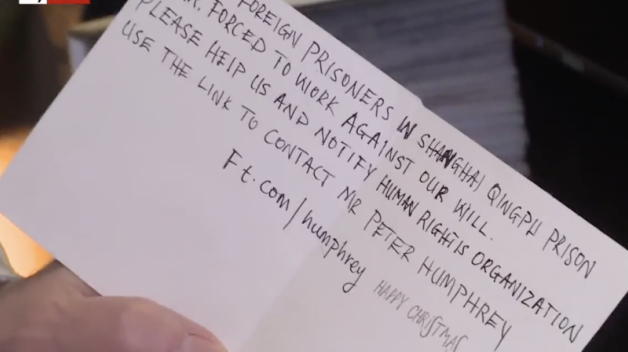 FOREIGN PRISONERS IN SHANGHAI QINGPU PRISON
FORCED TO WORK AGAINST OUR WILL.
PLEASE HELP US AND NOTIFY HUMAN RIGHTS ORGANIZATION
USE THE LINK TO CONTACT MR PETER HUMPHREY
Ft.com/humphrey HAPPY CHRISTMAS